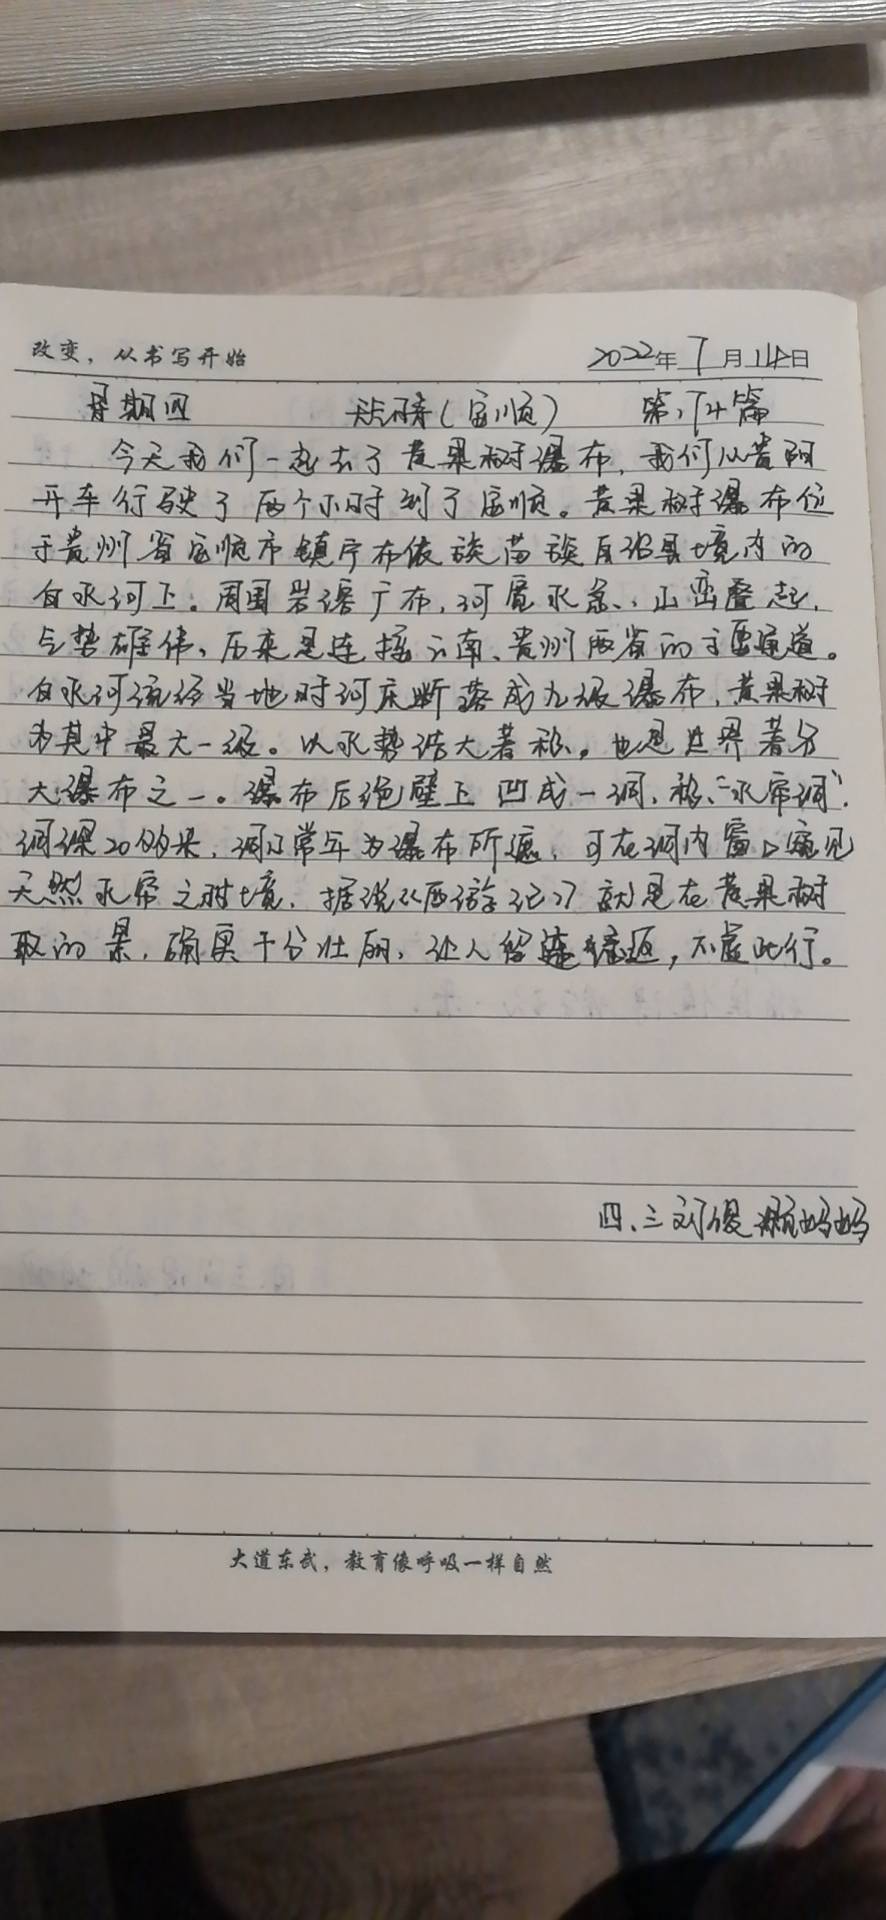 改变，从书写开始
2022年7月14日
星期四 天气晴（安顺） 第74篇
今天我们一起去了黄果树瀑布，我们从贵阳
开车行驶了两个小时到了安顺。黄果树瀑布位
于贵州省安顺市镇宁布依族苗族自治县境内的
白水河上。周围岩溶广布，河宽水急，山峦叠起，
气势雄伟，历来是连接云南、贵州两省的主要通道。
白水河流经当地时河床断落成九级瀑布，黄果树
为其中最大一级。以水势浩大著称。也是世界著名
大瀑布之一。瀑布后绝壁上凹成一洞，称“水帘洞”，
洞深20多米，洞口常年为瀑布所遮，可在洞内窗口窥见
天然水帘之胜境，据说《西游记》就是在黄果树
取的景，确实十分壮丽，让人留连忘返，不虚此行。
四、三刘俊 妈妈
大道东武，教育像呼吸一样自然